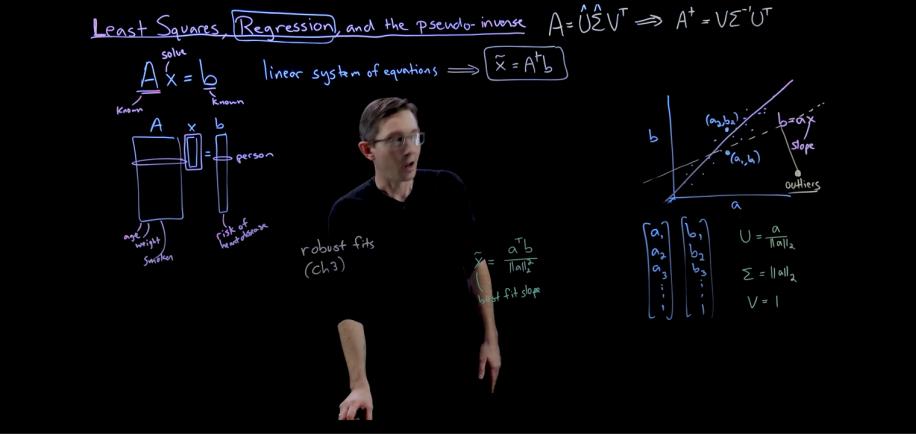 Least Squares, Regression, and the pseudo-inverse
A = ÛΣ̂Vᵀ ⟹ A⁺ = VΣ⁻¹Uᵀ
solve
A x = b
Known
Known
linear system of equations ⟹ x̃ = A⁺b
A x = b
person
age
weight
smoker
risk of
heart disease
robust fits
(Ch3)
x̃ = aᵀb / ||a||₂²
best fit slope
b
(a₂,b₂)
(a₁,b₁)
b = a x
slope
outliers
a
a₁ b₁
a₂ b₂
a₃ b₃
U = a / ||a||₂
Σ = ||a||₂
V = 1